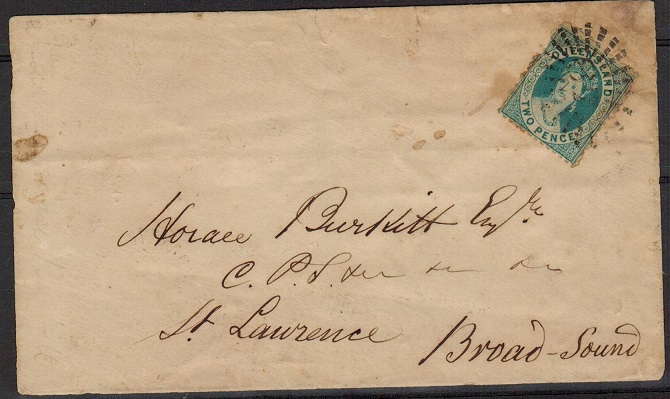 QUEENSLAND
TWO PENCE
Horace Burkitt Esqre
C. P. S. &c &c &c
St. Lawrence
Broad-Sound